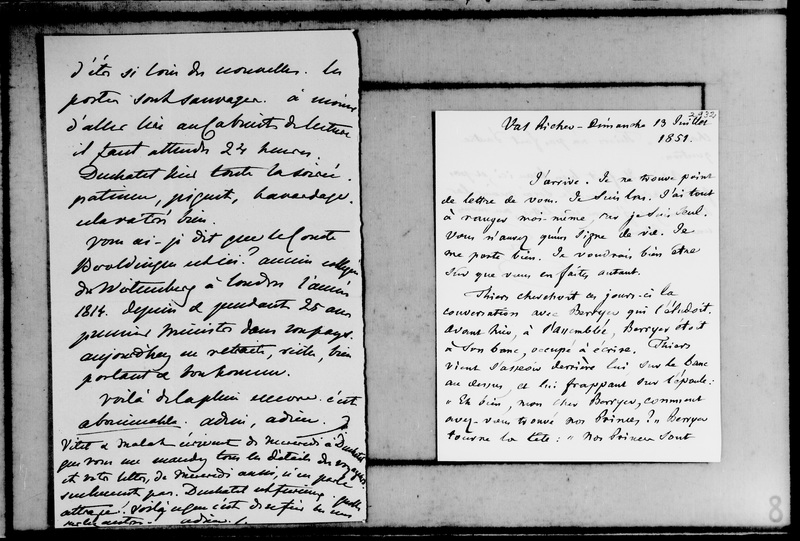 d'être si loin des nouvelles. les
postes sont sauvages. à moins
d'aller lire au Cabinet de lecture
il faut attendre 24 heures.
Duchatel hier toute la soirée.
patience, piquet, bavardage.
cela va très bien.
vous ai-je dit que le Comte
est ici? ancien collègue
du Würtemberg à Londres l'année
1814. depuis & pendant 25 ans
premier ministre dans son pays.
aujourd'huy en retraite, vieux, bien
portant & bon homme.
voilà de la pluie encore. c'est
abominable. adieu, adieu.
Vitet a écrivent de mercredi à Duchatel
que vous me mandez tous les détails
et votre lettre, de mercredi aussi, n'en parle
seulement pas. Duchatel est furieux.
attrape! voilà ce que c'est de
adieu.
2932
Val Richer - Dimanche 13 Juillet
1851.
J'arrive. Je ne trouve point
de lettre de vous. Je suis las. J'ai tout
à ranger moi-même, car je suis seul.
Vous n'aurez qu'un signe de vie. Je
me porte bien. Je voudrais bien être
sûr que vous en faites autant.
Thiers cherchoit ces jours-ci la
conversation avec Berryer qui l'éludoit.
Avant hier, à l'assemblée, Berryer étoit
à son banc, occupé à écrire. Thiers
vient s'asseoir derrière lui sur le banc
au dessus, et lui frappant sur l'épaule:
" Eh bien, mon cher Berryer, comment
avez-vous trouvé nos Princes? " Berryer
tourne la tête: " Nos Princes sont
8